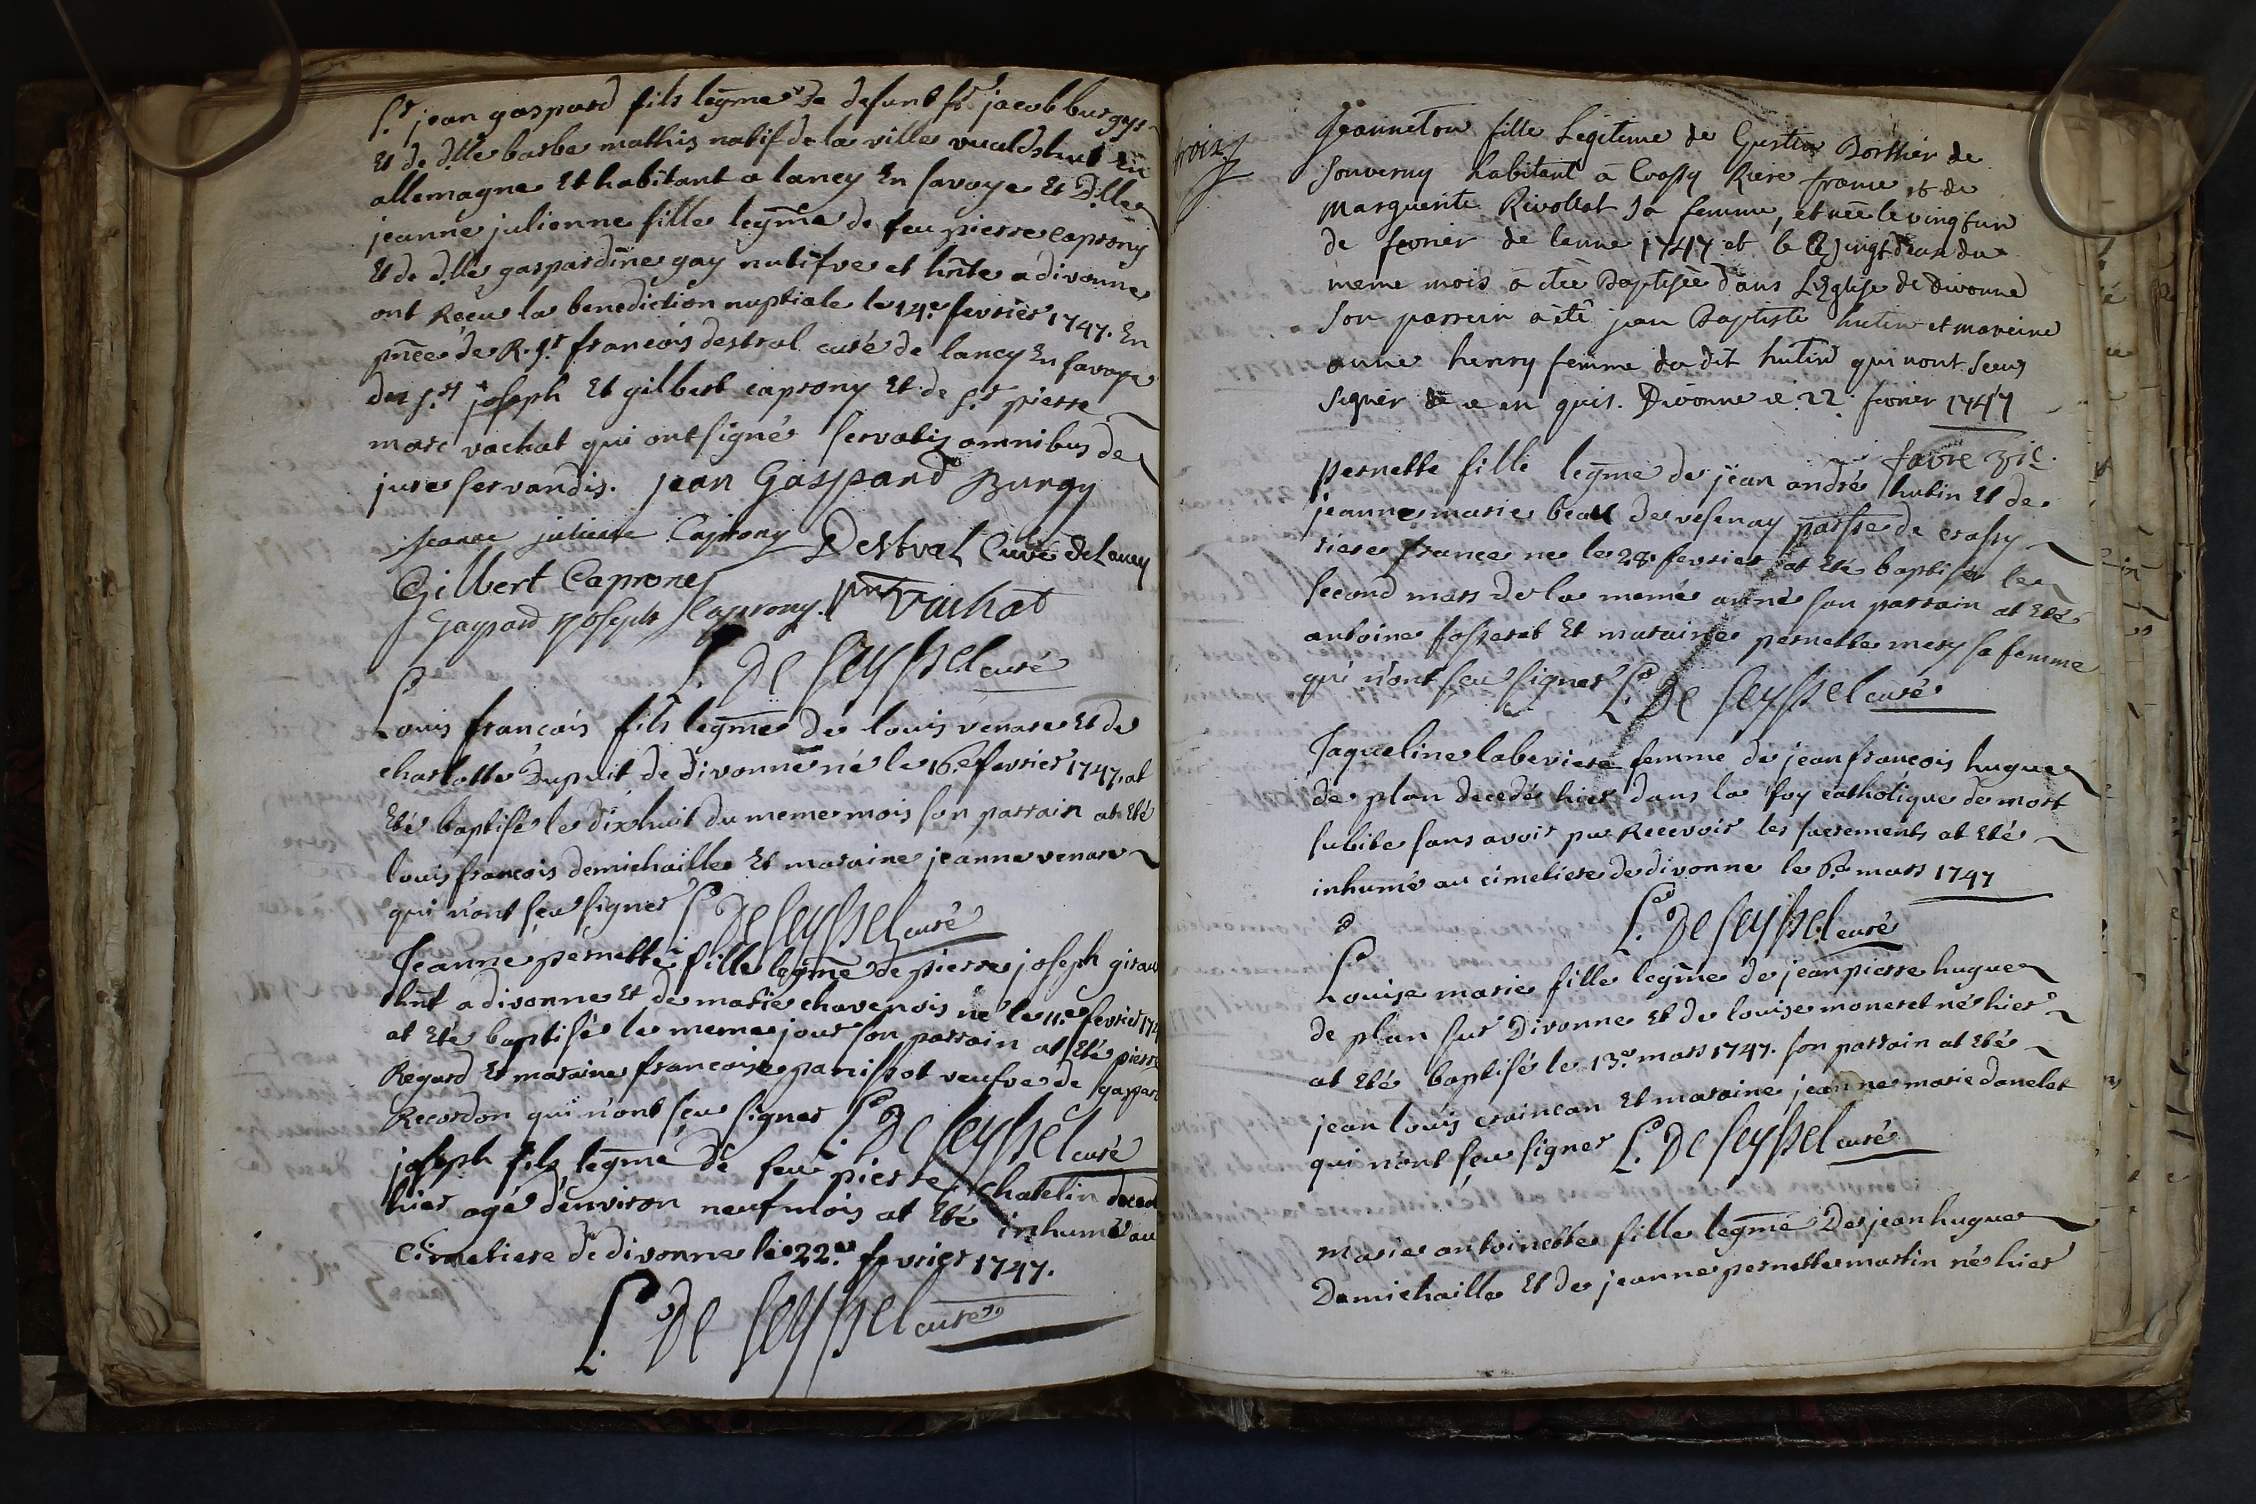 Sr jean gaspard fils legme de defunt Sr jacob burgys
Et de dlle barbe mathis natif de la ville vualdshut En
allemagne Et habitant a lancy En savoye Et Dlle
jeanne julienne fille legme de feu pierre caprony
Et de dlle gaspardine gay natifve et hnte a divonne
ont Receu la benediction nuptiale le 14e fevrier 1747. En
pnce de R. Sr francois destral curé de lancy En savoye
des Srs joseph Et gilbert caprony Et de Sr pierre
marc vachat qui ont signés servatis omnibus de
jure servandis. jean Gaspard Burgy
jeanne julienne Caprony Destral Curé de Lancy
Gilbert Caprony
gaspard joseph Caprony. pm Vachat
L. De Seyssel curé
Louis francois fils legme de louis venare Et de
charlotte Dupuit de divonne né le 16e fevrier 1747. at
Eté baptisé le dixhuit du meme mois son parrain at Eté
louis francois demichaille Et maraine jeanne venare
qui n'ont sçu signer L. De Seyssel curé
Jeanne pernette fille legme de pierre joseph girau
hnt a divonne Et de marie chavenois né le 11e fevrier 174
at Eté baptisé le meme jour son parrain at Eté pierre
Regard Et maraine francoise panissot veufve de gaspard
Recordon qui n'ont sçu signer L. De Seyssel curé
joseph fils legme de feu pierre chatelin deced
hier agé d'environ neuf mois at Eté inhumé au
Cimetiere de divonne le 22e fevrier 1747.
L. De Seyssel curé
Jeanneton fille Legitime de Gustin Borthier de
Souverny habitant à Crassy Riere france et de
Marguerite Rivollat sa femme, et née le vingt un
de fevrier de lanne 1747 et le vingt deux du
meme mois a été Baptisée dans L'Eglise de Divonne
Son parrein a été jean Baptiste hutin et mareine
anne henry femme du dit hutin qui n'ont sceus
signer de ce en quis. Divonne ce 22 fevrier 1747
favre vic.
pernette fille legme de jean andré hutin Et de
jeanne marie beau de vesenay parsse de crassy
riere france ne le 28e fevrier at Eté baptisé le
second mars de la meme année son parrain at Eté
antoine fosserat Et maraine pernette mery sa femme
qui n'ont sçeu signer L. De Seyssel curé
Jaqueline laberiere femme de jean francois hugue
de plan decedée hier dans la foy catholique de mort
subite sans avoir pu Recevoir les sacrements at Eté
inhumé au cimetiere de divonne le 6e mars 1747
L. De Seyssel curé
Louise marie fille legme de jean pierre hugue
de plan sur Divonne Et de louise moneret né hier
at Eté baptisé le 13e mars 1747. son parrain at Eté
jean louis crainean Et maraine jeanne marie danelet
qui n'ont sçeu signer L. De Seyssel curé
marie antoinette fille legme De jean hugue
Demichaille Et de jeanne pernette martin né hier